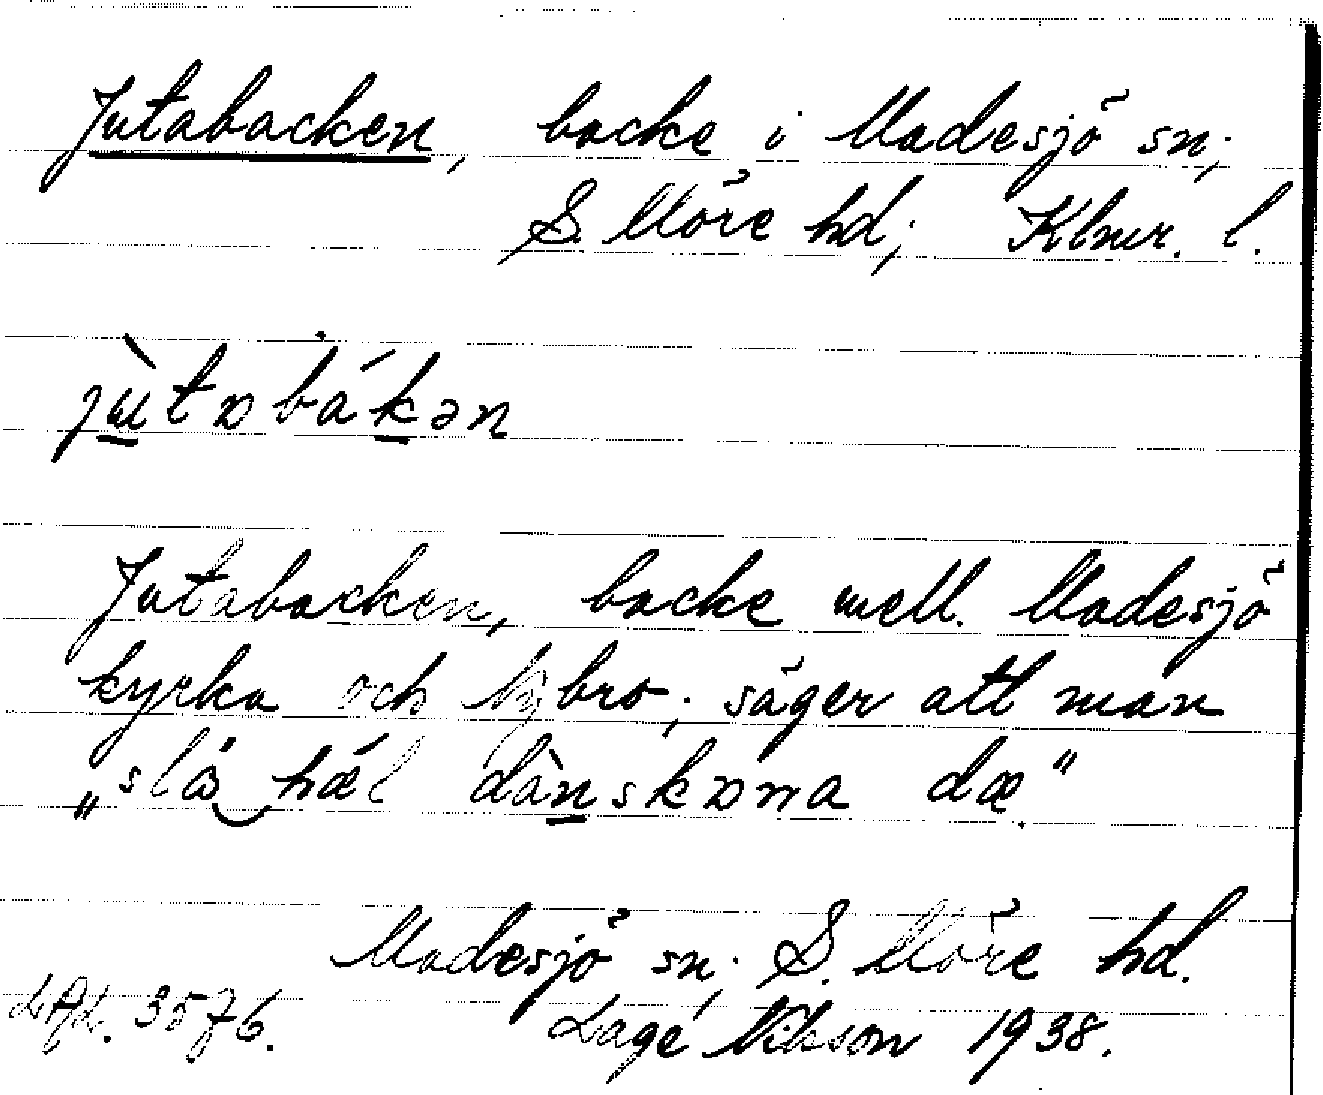 Jutabacken, backe i Madesjö sn;
S. Möre hd; Klmr. l.
jùtɒbákən
Jutabacken, backe mell. Madesjö
kyrka och Nybro; säger att man
„slå hæl dànskɒrna dæ"
Madesjö sn; S. Möre hd.
LAL. 3576. Lage Nilsson 1938.